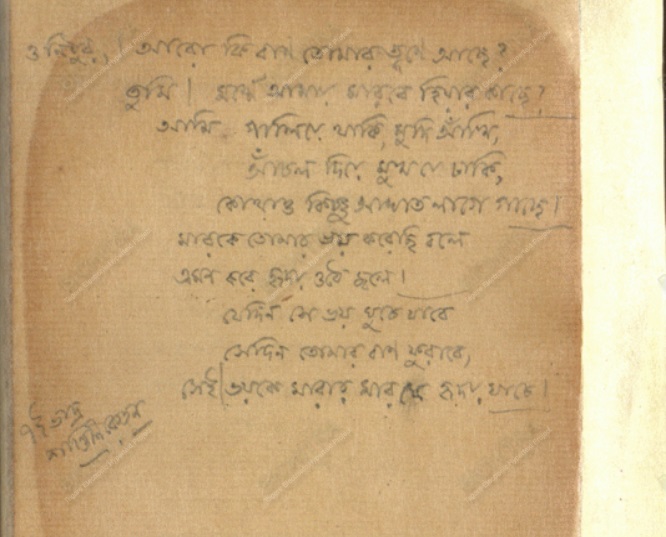 ও নিঠুর, | আরো কি বাণ তোমার তূণে আছে?
তুমি | মর্মে আমায় মারবে হিয়ার কাছে?
আমি পালিয়ে থাকি, মুদি আঁখি,
আঁচল দিয়ে মুখ যে ঢাকি,
কোথাও কিছু আঘাত লাগে পাছে।
মারকে তোমার ভয় করেছি বলে
এমন করে হৃদয় ওঠে জ্বলে।
যেদিন সে ভয় ঘুচে যাবে
সেদিন তোমার বাণ ফুরাবে,
সেই | ভয়কে মারার হৃদয় বাঁচে।
ভাদ্র
শান্তিনিকেতন